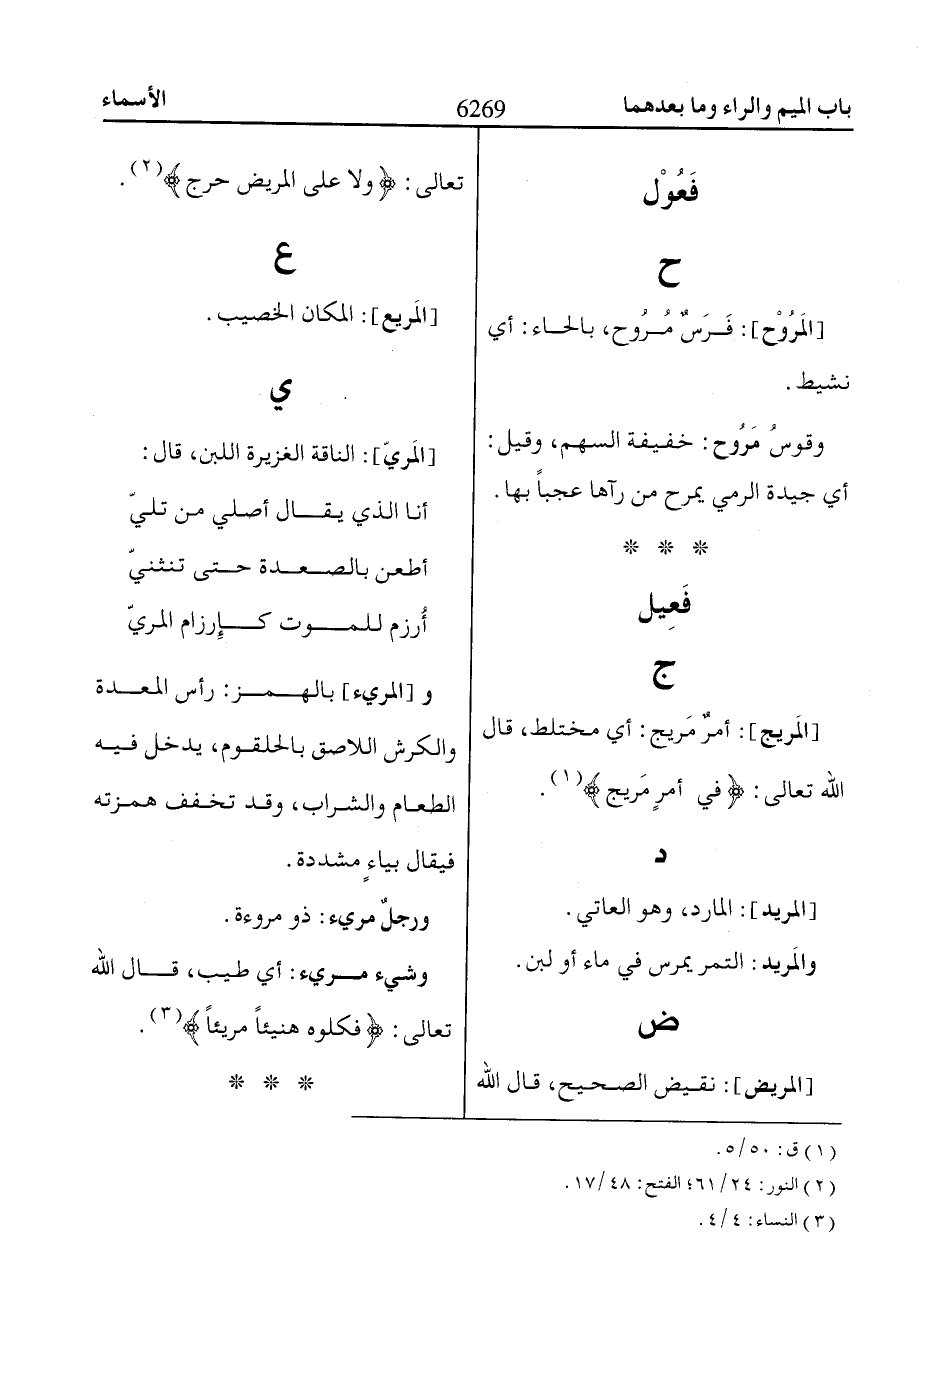 باب الميم والراء وما بعدهما
6269
الأسماء
فَعُوْل
ح
[المَرُوْح]: فَرَسٌ مَُروُح، بالحاء: أي
نشيط.
وقوسُ مَرُوح: خفيفة السهم، وقيل:
أي جيدة الرمي يمرح من رآها عجباً بها.
* * *
فَعِيل
ج
[المَريج]: أمرٌ مَريج: أي مختلط، قال
الله تعالى: ﴿في أمرٍ مَريج﴾(١).
د
[المريد]: المارد، وهو العاتي.
والمَريد: التمر يمرس في ماء أو لبن.
ض
[المريض]: نقيض الصحيح، قال الله
تعالى: ﴿ولا على المريض حرج﴾(٢).
ع
[المَريع]: المكان الخصيب.
ي
[المَريّ]: الناقة الغزيرة اللبن، قال:
أنا الذي يقال أصلي من تليّ
أطعن بالصعدة حتى تنثنيّ
أُرزم للموت كإرزام المريّ
و [المريء] بالهمز: رأس المعدة
والكرش اللاصق بالحلقوم، يدخل فيه
الطعام والشراب، وقد تخفف همزته
فيقال بياءٍ مشددة.
ورجلٌ مريء: ذو مروءة.
وشيء مريء: أي طيب، قال الله
تعالى: ﴿فكلوه هنيئاً مريئاً﴾(٣).
* * *
(١) ق: ٥/٥٠.
(٢) النور: ٦١/٢٤؛ الفتح: ١٧/٤٨.
(٣) النساء: ٤/٤.